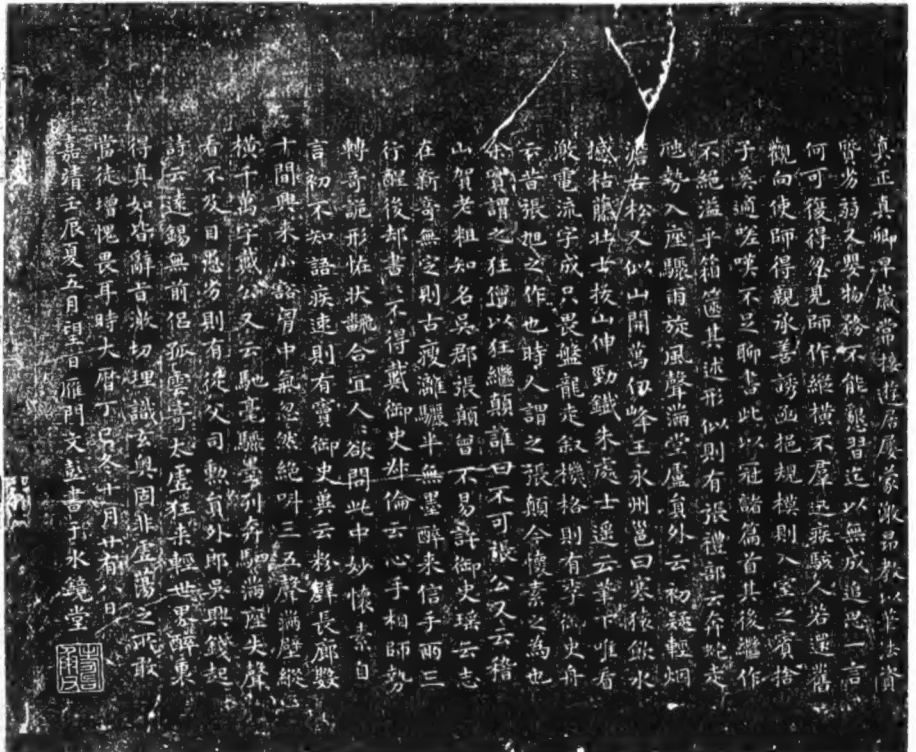 真正真卿早歲常接遊居屢蒙激昂教以筆法資
質劣弱又嬰物務不能懇習迄以無成追思一言
何可復得忽見師作縱橫不羣迅疾駭人若還舊
觀向使師得親承善誘函挹規模則入室之賓捨
子奚適嗟嘆不足聊書此以冠諸篇首其後繼作
不絕溢乎箱篋其述形似則有張禮部云奔蛇走
虺勢入座驟雨旋風聲滿堂盧員外云初疑輕烟
澹古松又似山開萬仞峰王永州邕曰寒猿飲水
撼枯藤壯士拔山伸勁鐵朱處士遥云筆下唯看
激電流字成只畏盤龍走叙機格則有李御史舟
云昔張旭之作也時人謂之張顛今懷素之為也
余實謂之狂僧以狂繼顛誰曰不可張公又云稽
山賀老粗知名吳郡張顛曾不易許御史瑤云志
在新奇無定則古瘦灕驪半無墨醉来信手兩三
行醒後却書〻不得戴御史叔倫云心手相師勢
轉奇詭形怪狀飜合宜人〻欲問此中妙懷素自
言初不知語疾速則有竇御史兾云粉壁長廊數
十間興来小豁胷中氣忽然絕叫三五聲滿壁縱
橫千萬字戴公又云馳毫驟墨列奔駟滿座失聲
看不及目愚劣則有従父司勳員外郎吳興錢起
詩云遠錫無前侣孤雲寄太虚狂来輕世界醉裏
得真如皆辭旨激切理識玄奥固非虚蕩之所敢
當徒增愧畏耳時大曆丁巳冬十月廿有八日
嘉靖壬辰夏五月望日雁門文彭書于水鏡堂